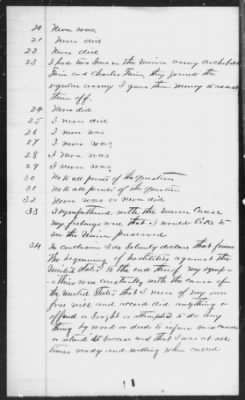 20 Never was.
21 Never did
22 Never did
23 I had two sons in the Union army Archibald
Fain and Charles Fain they joined the
regular army I gave them money to assist
them off.
24 Never did
25 I never did
26 I never was
27 I never was
28 I never was
29 I never was
30 No to all points of the question
31 No to all points of the question
32 Never was or never did
33 I sympathized with the Union Cause
my feelings was that I would like to
see the Union preserved
34 In conclusion I do solemnly declare that from
the beginning of hostilities against the
United States to the end thereof my sympa-
thies were constantly with the cause of
the United States that I never of my own
free will and accord did anything or
offered or sought or attempted to do any
thing by word or deed to injure said cause
or retard its success and that I was at all
times ready and willing when called